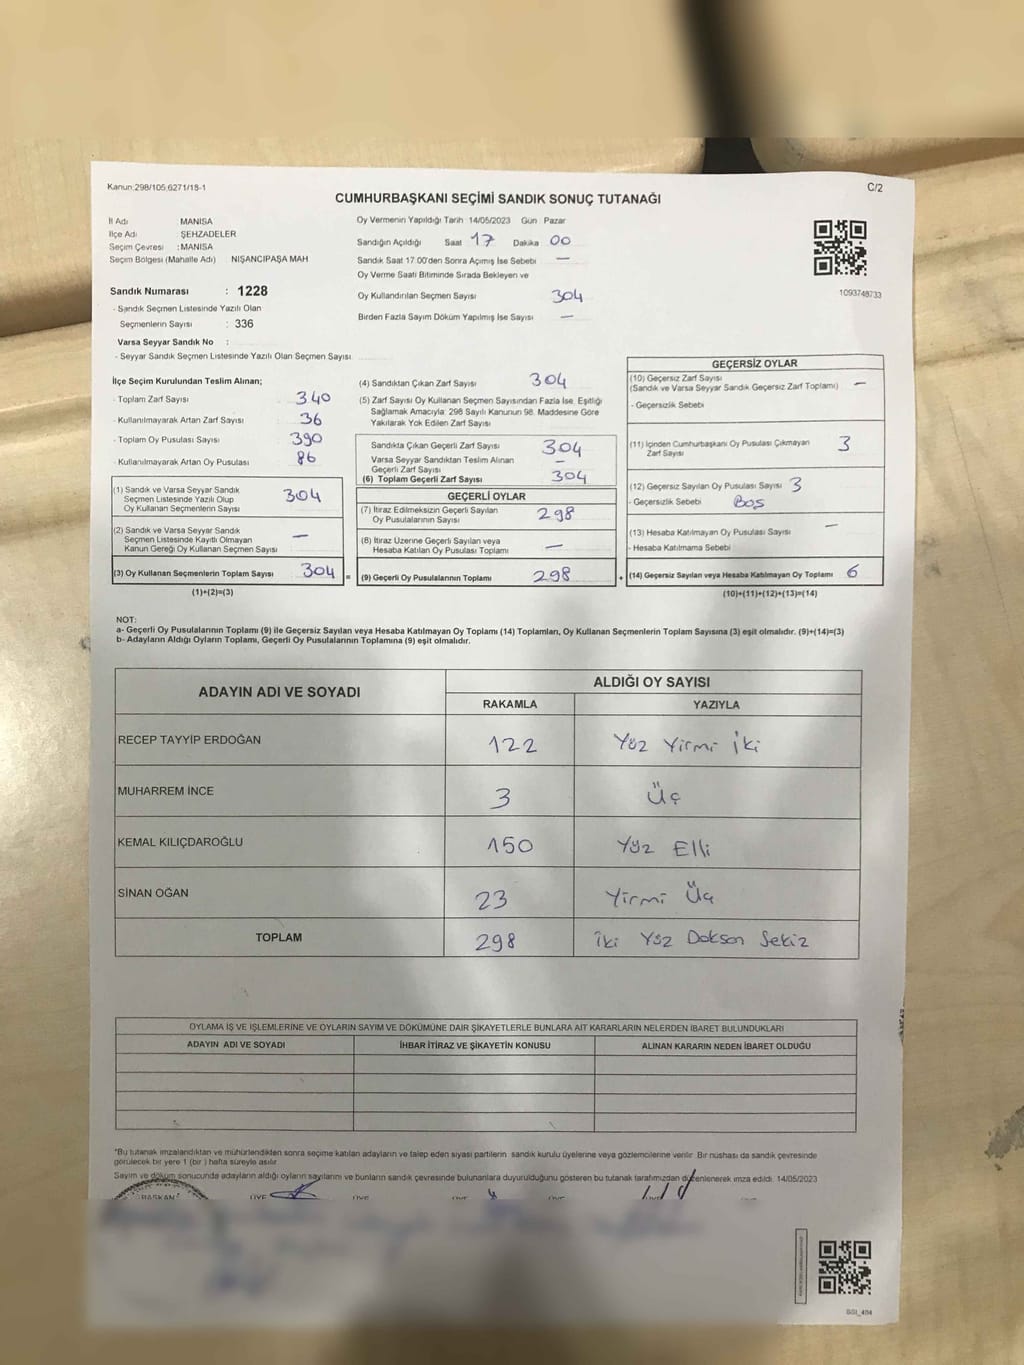 Kanun:298/105,6271/18-1
C/2
CUMHURBAŞKANI SEÇİMİ SANDIK SONUÇ TUTANAĞI
İl Adı MANİSA
İlçe Adı : ŞEHZADELER
Seçim Çevresi :MANİSA
Seçim Bölgesi (Mahalle Adı) NİŞANCIPAŞA MAH
Sandık Numarası : 1228
- Sandık Seçmen Listesinde Yazılı Olan
Seçmenlerin Sayısı : 336
Varsa Seyyar Sandık No :
- Seyyar Sandık Seçmen Listesinde Yazılı Olan Seçmen Sayısı
Oy Vermenin Yapıldığı Tarih 14/05/2023 Gün Pazar
Sandığın Açıldığı Saat 17 Dakika 00
Sandık Saat 17.00'den Sonra Açımış İse Sebebi —
Oy Verme Saati Bitiminde Sırada Bekleyen ve
Oy Kullandırılan Seçmen Sayısı 304
Birden Fazla Sayım Döküm Yapılmış İse Sayısı —
1093748733
İlçe Seçim Kurulundan Teslim Alınan;
- Toplam Zarf Sayısı 340
- Kullanılmayarak Artan Zarf Sayısı 36
- Toplam Oy Pusulası Sayısı 390
- Kullanılmayarak Artan Oy Pusulası 86
(1) Sandık ve Varsa Seyyar Sandık
Seçmen Listesinde Yazılı Olup
Oy Kullanan Seçmenlerin Sayısı 304
(2) Sandık ve Varsa Seyyar Sandık
Seçmen Listesinde Kayıtlı Olmayan
Kanun Gereği Oy Kullanan Seçmen Sayısı —
(3) Oy Kullanan Seçmenlerin Toplam Sayısı 304
(1)+(2)=(3)
(4) Sandıktan Çıkan Zarf Sayısı 304
(5) Zarf Sayısı Oy Kullanan Seçmen Sayısından Fazla İse, Eşitliği
Sağlamak Amacıyla; 298 Sayılı Kanunun 98. Maddesine Göre
Yakılarak Yok Edilen Zarf Sayısı
Sandıkta Çıkan Geçerli Zarf Sayısı 304
Varsa Seyyar Sandıktan Teslim Alınan
Geçerli Zarf Sayısı —
(6) Toplam Geçerli Zarf Sayısı 304
GEÇERLİ OYLAR
(7) İtiraz Edilmeksizin Geçerli Sayılan
Oy Pusulalarının Sayısı 298
(8) İtiraz Üzerine Geçerli Sayılan veya
Hesaba Katılan Oy Pusulası Toplamı —
= (9) Geçerli Oy Pusulalarının Toplamı 298 +
GEÇERSİZ OYLAR
(10) Geçersiz Zarf Sayısı
(Sandık ve Varsa Seyyar Sandık Geçersiz Zarf Toplamı) —
- Geçersizlik Sebebi
(11) İçinden Cumhurbaşkanı Oy Pusulası Çıkmayan
Zarf Sayısı 3
(12) Geçersiz Sayılan Oy Pusulası Sayısı 3
- Geçersizlik Sebebi Boş
(13) Hesaba Katılmayan Oy Pusulası Sayısı —
- Hesaba Katılmama Sebebi
(14) Geçersiz Sayılan veya Hesaba Katılmayan Oy Toplamı 6
(10)+(11)+(12)+(13)=(14)
NOT:
a- Geçerli Oy Pusulalarının Toplamı (9) ile Geçersiz Sayılan veya Hesaba Katılmayan Oy Toplamı (14) Toplamları, Oy Kullanan Seçmenlerin Toplam Sayısına (3) eşit olmalıdır. (9)+(14)=(3)
b- Adayların Aldığı Oyların Toplamı, Geçerli Oy Pusulalarının Toplamına (9) eşit olmalıdır.
ADAYIN ADI VE SOYADI
ALDIĞI OY SAYISI
RAKAMLA YAZIYLA
RECEP TAYYİP ERDOĞAN 122 Yüz Yirmi İki
MUHARREM İNCE 3 Üç
KEMAL KILIÇDAROĞLU 150 Yüz Elli
SİNAN OĞAN 23 Yirmi Üç
TOPLAM 298 İki Yüz Doksan Sekiz
OYLAMA İŞ VE İŞLEMLERİNE VE OYLARIN SAYIM VE DÖKÜMÜNE DAİR ŞİKAYETLERLE BUNLARA AİT KARARLARIN NELERDEN İBARET BULUNDUKLARI
ADAYIN ADI VE SOYADI İHBAR İTİRAZ VE ŞİKAYETİN KONUSU ALINAN KARARIN NEDEN İBARET OLDUĞU
*Bu tutanak imzalandıktan ve mühürlendikten sonra seçime katılan adayların ve talep eden siyasi partilerin sandık kurulu üyelerine veya gözlemcilerine verilir. Bir nüshası da sandık çevresinde
görülecek bir yere 1 (bir ) hafta süreyle asılır.
Sayım ve döküm sonucunda adayların aldığı oyların sayılarını ve bunların sandık çevresinde bulunanlara duyurulduğunu gösteren bu tutanak tarafımızdan düzenlenerek imza edildi. 14/05/2023
BAŞKAN ÜYE ÜYE ÜYE ÜYE ÜYE